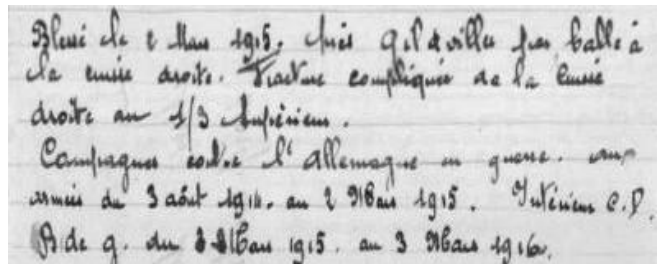 Blessé le 2 Mars 1915. près Gildwiller par balle à
la cuisse droite. Fracture compliquée de la Cuisse
droite au 1/3 Supérieur.
Campagnes contre l'Allemagne en guerre. aux
armées du 3 août 1914. au 2 Mars 1915. Intérieur C.D.
B de g. du 3 Mars 1915. au 3 Mars 1916.